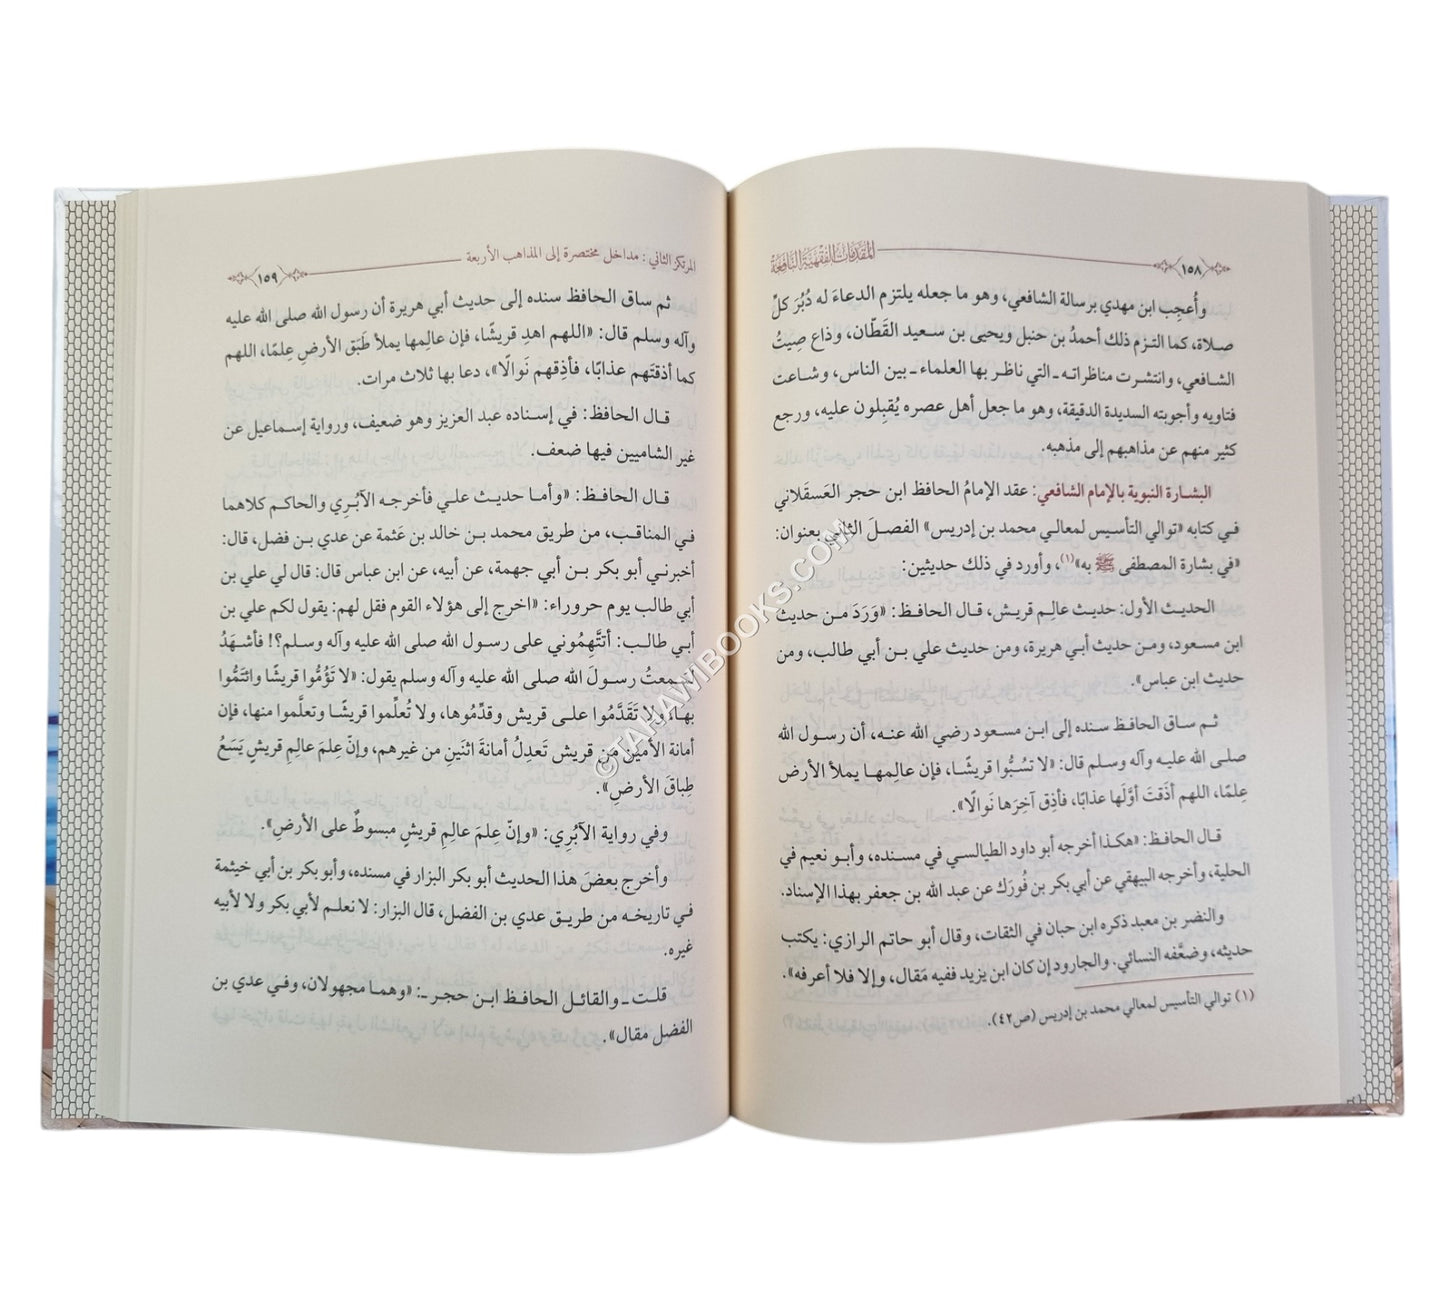 ١٥٨
المقدمات الفقهية النافعة
وأُعجِب ابن مهدي برسالة الشافعي، وهو ما جعله يلتزم الدعاءَ له دُبُرَ كلِّ
صلاة، كما التزم ذلك أحمدُ بن حنبل ويحيى بن سعيد القَطّان، وذاع صِيتُ
الشافعي، وانتشرت مناظراته ـ التي ناظر بها العلماء ـ بين الناس، وشاعت
فتاويه وأجوبته السديدة الدقيقة، وهو ما جعل أهل عصره يُقبِلون عليه، ورجع
كثير منهم عن مذاهبهم إلى مذهبه.
البشارة النبوية بالإمام الشافعي: عقد الإمامُ الحافظ ابن حجر العَسقَلاني
في كتابه «توالي التأسيس لمعالي محمد بن إدريس» الفصلَ الثاني بعنوان:
«في بشارة المصطفى ﷺ به»(١)، وأورد في ذلك حديثين:
الحديث الأول: حديث عالِم قريش، قال الحافظ: «وَرَدَ من حديث
ابن مسعود، ومن حديث أبي هريرة، ومن حديث علي بن أبي طالب، ومن
حديث ابن عباس».
ثم ساق الحافظ سنده إلى ابن مسعود رضي الله عنه، أن رسول الله
صلى الله عليه وآله وسلم قال: «لا تسُبُّوا قريشًا، فإن عالِمها يملأ الأرض
عِلمًا، اللهم أذَقتَ أوَّلَها عذابًا، فأذِق آخِرَها نَوالًا».
قال الحافظ: «هكذا أخرجه أبو داود الطيالسي في مسنده، وأبو نعيم في
الحلية، وأخرجه البيهقي عن أبي بكر بن فُورَك عن عبد الله بن جعفر بهذا الإسناد.
والنضر بن معبد ذكره ابن حبان في الثقات، وقال أبو حاتم الرازي: يكتب
حديثه، وضعَّفه النسائي. والجارود إن كان ابن يزيد ففيه مَقال، وإلا فلا أعرفه».
(١) توالي التأسيس لمعالي محمد بن إدريس (ص٤٢).
المرتكز الثاني: مداخل مختصرة إلى المذاهب الأربعة
١٥٩
ثم ساق الحافظ سنده إلى حديث أبي هريرة أن رسول الله صلى الله عليه
وآله وسلم قال: «اللهم اهدِ قريشًا، فإن عالِمها يملأ طَبَق الأرضِ عِلمًا، اللهم
كما أذقتَهم عذابًا، فأذِقهم نَوالًا»، دعا بها ثلاث مرات.
قال الحافظ: في إسناده عبد العزيز وهو ضعيف، ورواية إسماعيل عن
غير الشاميين فيها ضعف.
قال الحافظ: «وأما حديث علي فأخرجه الآبُرِي والحاكم كلاهما
في المناقب، من طريق محمد بن خالد بن عَثمة عن عدي بن فضل، قال:
أخبرني أبو بكر بن أبي جهمة، عن أبيه، عن ابن عباس قال: قال لي علي بن
أبي طالب يوم حروراء: «اخرج إلى هؤلاء القوم فقل لهم: يقول لكم علي بن
أبي طالب: أتتَّهِمُوني على رسول الله صلى الله عليه وآله وسلم؟! فأشهَدُ
سمعتُ رسولَ الله صلى الله عليه وآله وسلم يقول: «لا تَؤُمُّوا قريشًا وائتَمُّوا
بها، ولا تَقَدَّمُوا على قريش وقدِّمُوها، ولا تُعلِّموا قريشًا وتعلَّموا منها، فإن
أمانة الأمين من قريش تَعدِلُ أمانةَ اثنَينِ من غيرهم، وإنّ عِلمَ عالِمِ قريشٍ يَسَعُ
طِباقَ الأرضِ».
وفي رواية الآبُرِي: «وإنّ عِلمَ عالِمِ قريشٍ مبسوطٌ على الأرضِ».
وأخرج بعضَ هذا الحديث أبو بكر البزار في مسنده، وأبو بكر بن أبي خيثمة
في تاريخه من طريق عدي بن الفضل، قال البزار: لا نعلم لأبي بكر ولا لأبيه
غيره.
قلت ـ والقائل الحافظ ابن حجر ـ: «وهما مجهولان، وفي عدي بن
الفضل مقال».
© TAHAWIBOOKS.COM